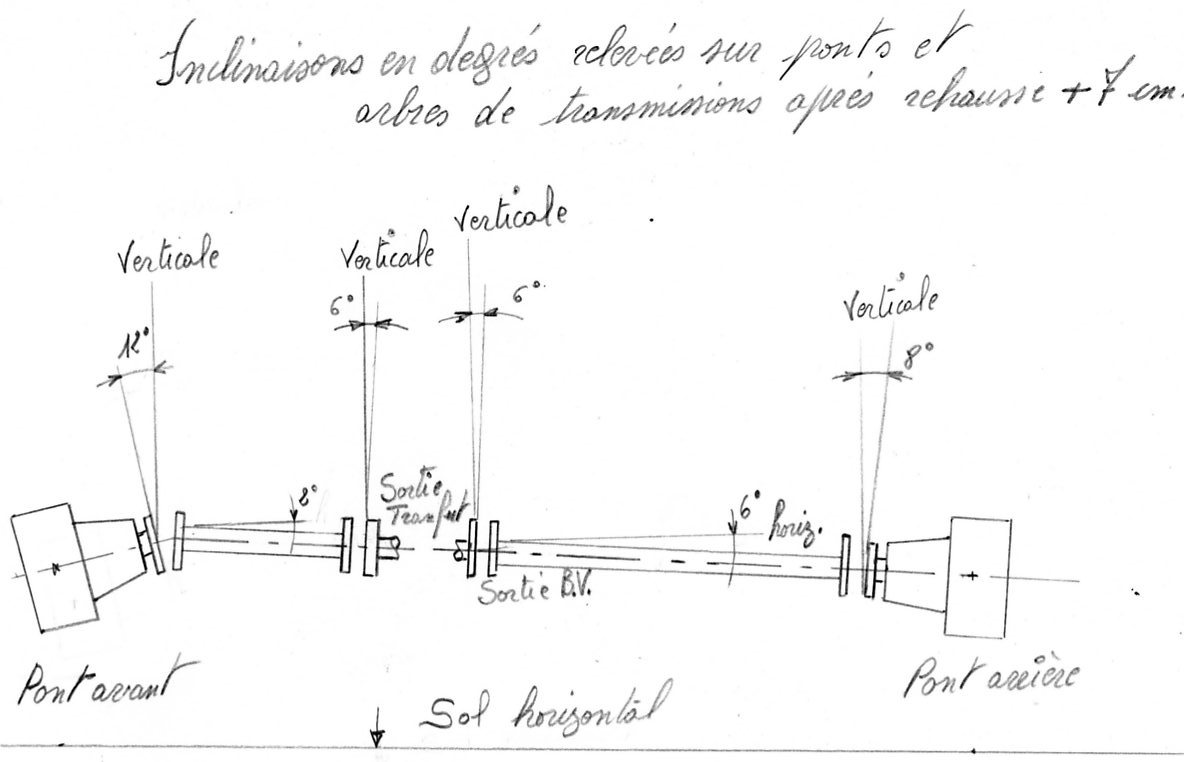 Inclinaisons en degrés relevées sur ponts et
arbres de transmissions après rehausse +7 cm.
Verticale
Verticale
Verticale
Verticale
12°
6°
6°
8°
Sortie
Transfert
2°
6° horiz.
Sortie B.V.
Pont avant
Pont arrière
Sol horizontal